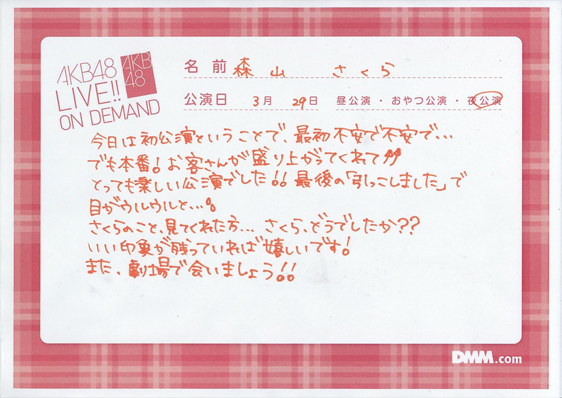 AKB48
LIVE!!
ON DEMAND
AKB
48
名前 森山 さくら
公演日 3月 29日 昼公演・おやつ公演・夜公演
今日は初公演ということで、最初不安で不安で…
でも本番!お客さんが盛り上がってくれて!!
とっても楽しい公演でした!! 最後の「引っこしました」で
目がウルウルと…。
さくらのこと、見てくれた方… さくら、どうでしたか??
いい印象が残っていれば嬉しいです!
また、劇場で会いましょう!!
DMM.com